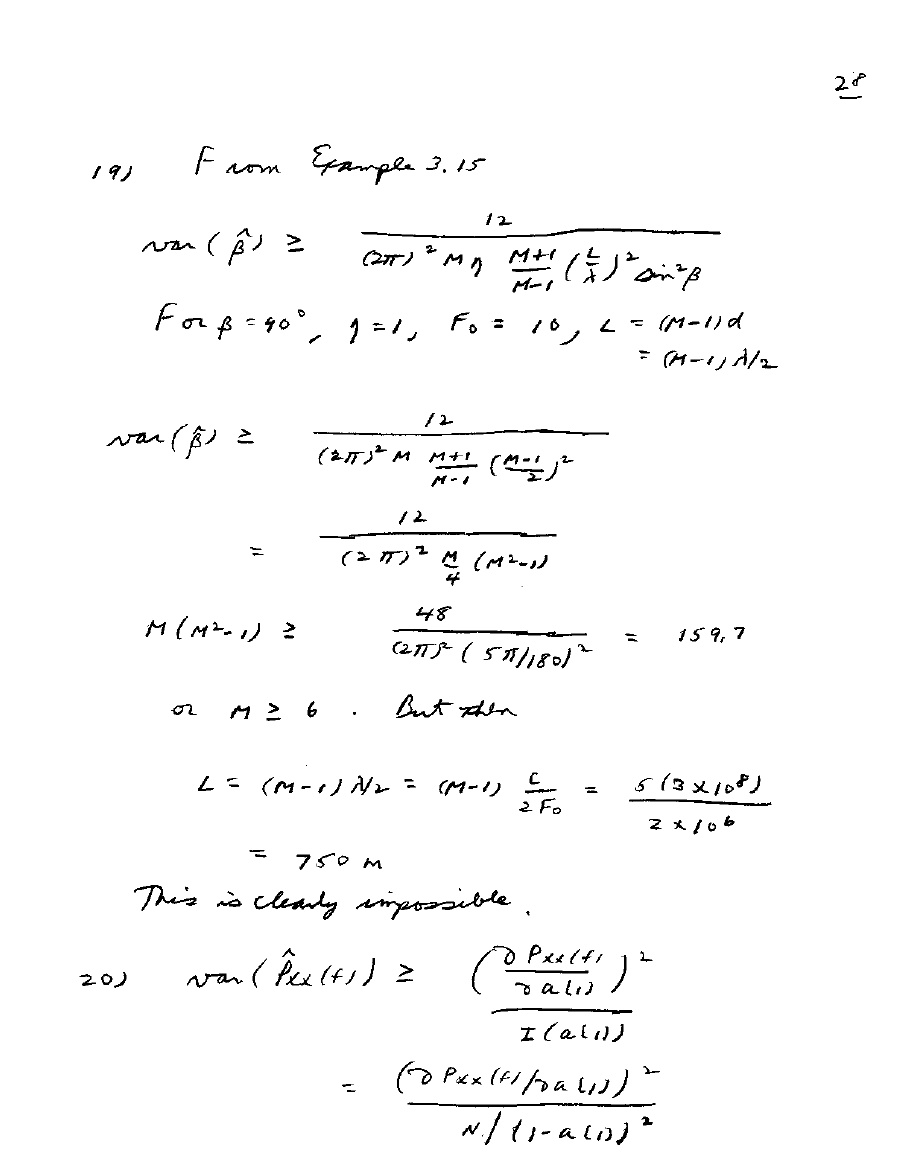 28
19) From Example 3.15
var(β̂) ≥ 12 / ((2π)² M η (M+1)/(M-1) (L/λ)² sin²β)
For β = 90°, η = 1, F₀ = 10, L = (M-1)d
= (M-1) λ/2
var(β̂) ≥ 12 / ((2π)² M (M+1)/(M-1) ((M-1)/2)²)
= 12 / ((2π)² M/4 (M²-1))
M(M²-1) ≥ 48 / ((2π)² (5π/180)²) = 159.7
or M ≥ 6 . But then
L = (M-1) λ/2 = (M-1) c/(2F₀) = 5(3×10⁸) / (2×10⁶)
= 750 m
This is clearly impossible.
20) var(P̂xx(f)) ≥ (∂Pxx(f)/∂a[1])² / I(a[1])
= (∂Pxx(f)/∂a[1])² / (N/(1-a[1])²)